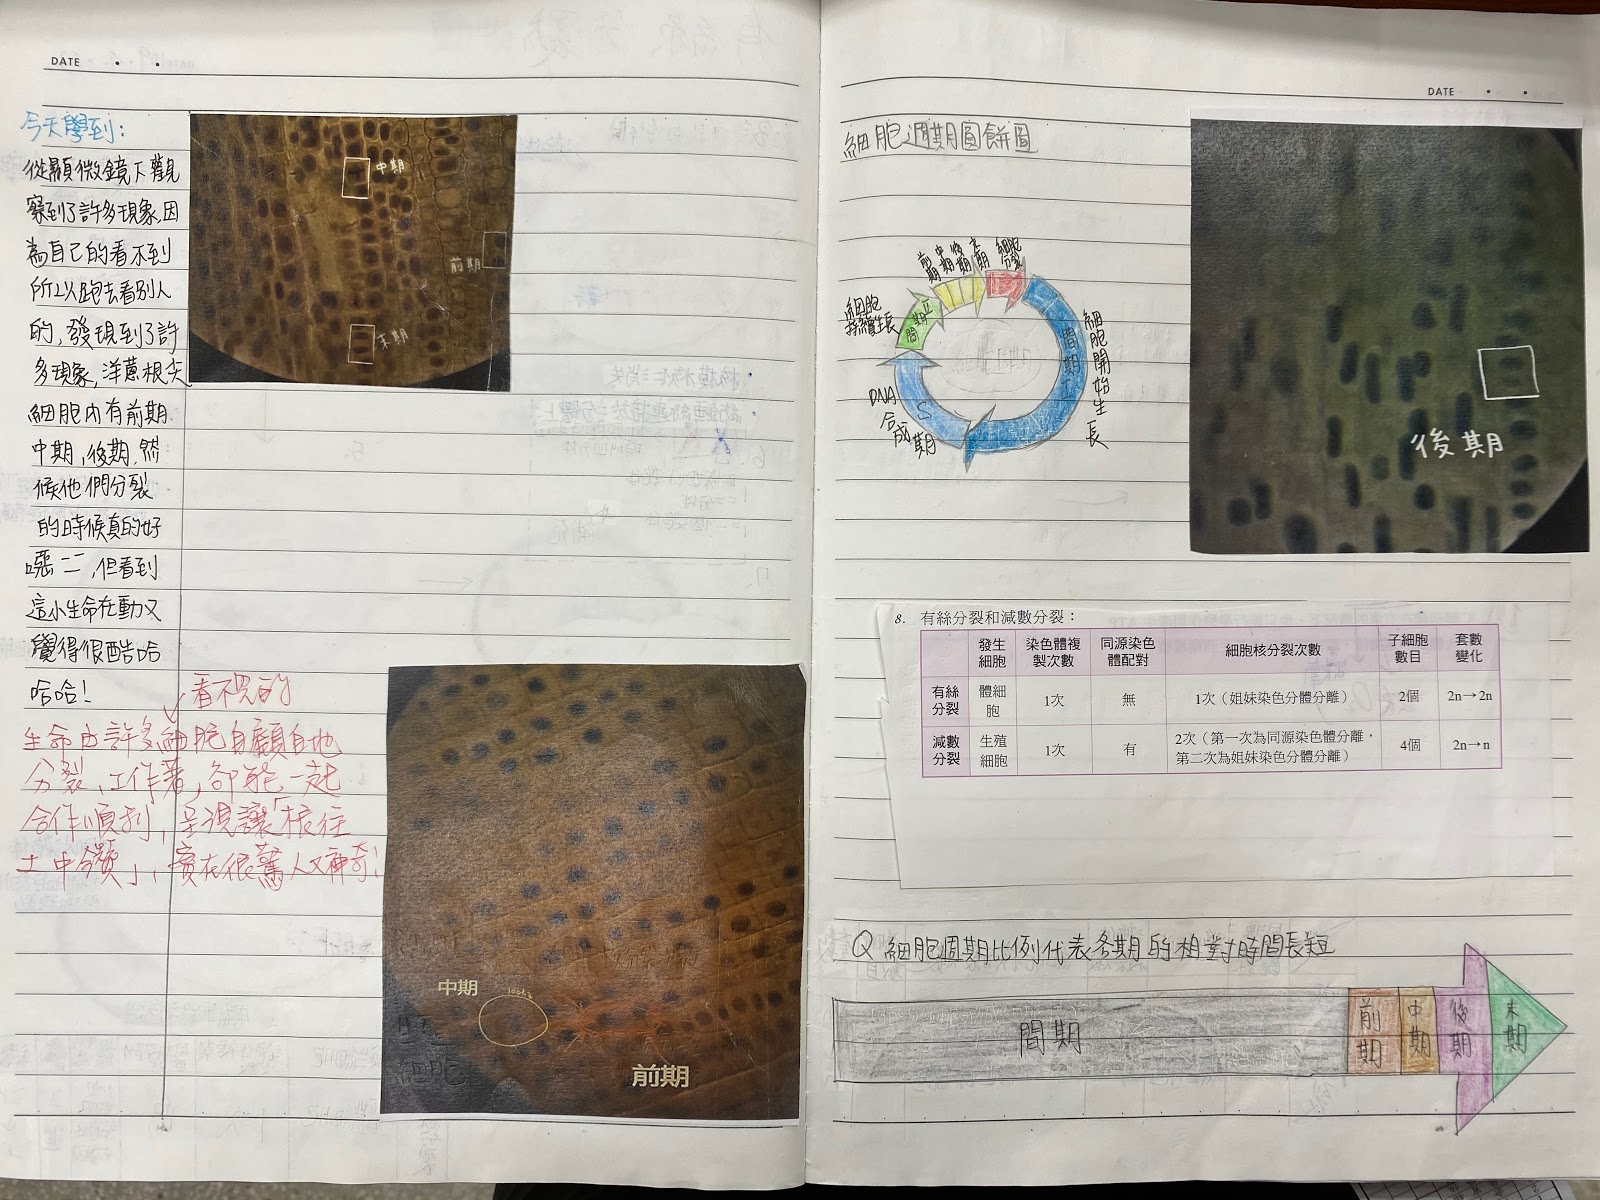 DATE
今天學到:
從顯微鏡下觀
察到了許多現象,因
為自己的看不到
所以跑去看別人
的,發現到了許
多現象,洋蔥根尖
細胞內有前期
中期,後期,然
候他們分裂
的時候真的好
噁 = =,但看到
這小生命在動又
覺得很酷哈
哈哈!
看不見的
生命由許多細胞自顧自地
分裂、工作著,卻能一起
合作順利,
讓「根往
土中鑽」,實在很驚人又神奇!
中期
前期
末期
中期
前期
DATE
細胞週期圓餅圖
前期
中期
後期
末期
細胞分裂
細胞持續生長
間期II
間期I
細胞開始生長
DNA合成
S期
後期
8. 有絲分裂和減數分裂:
發生細胞 染色體複製次數 同源染色體配對 細胞核分裂次數 子細胞數目 套數變化
有絲分裂 體細胞 1次 無 1次(姐妹染色分體分離) 2個 2n→2n
減數分裂 生殖細胞 1次 有 2次(第一次為同源染色體分離,第二次為姐妹染色分體分離) 4個 2n→n
Q 細胞週期比例代表各期的相對時間長短
間期 前期 中期 後期 末期